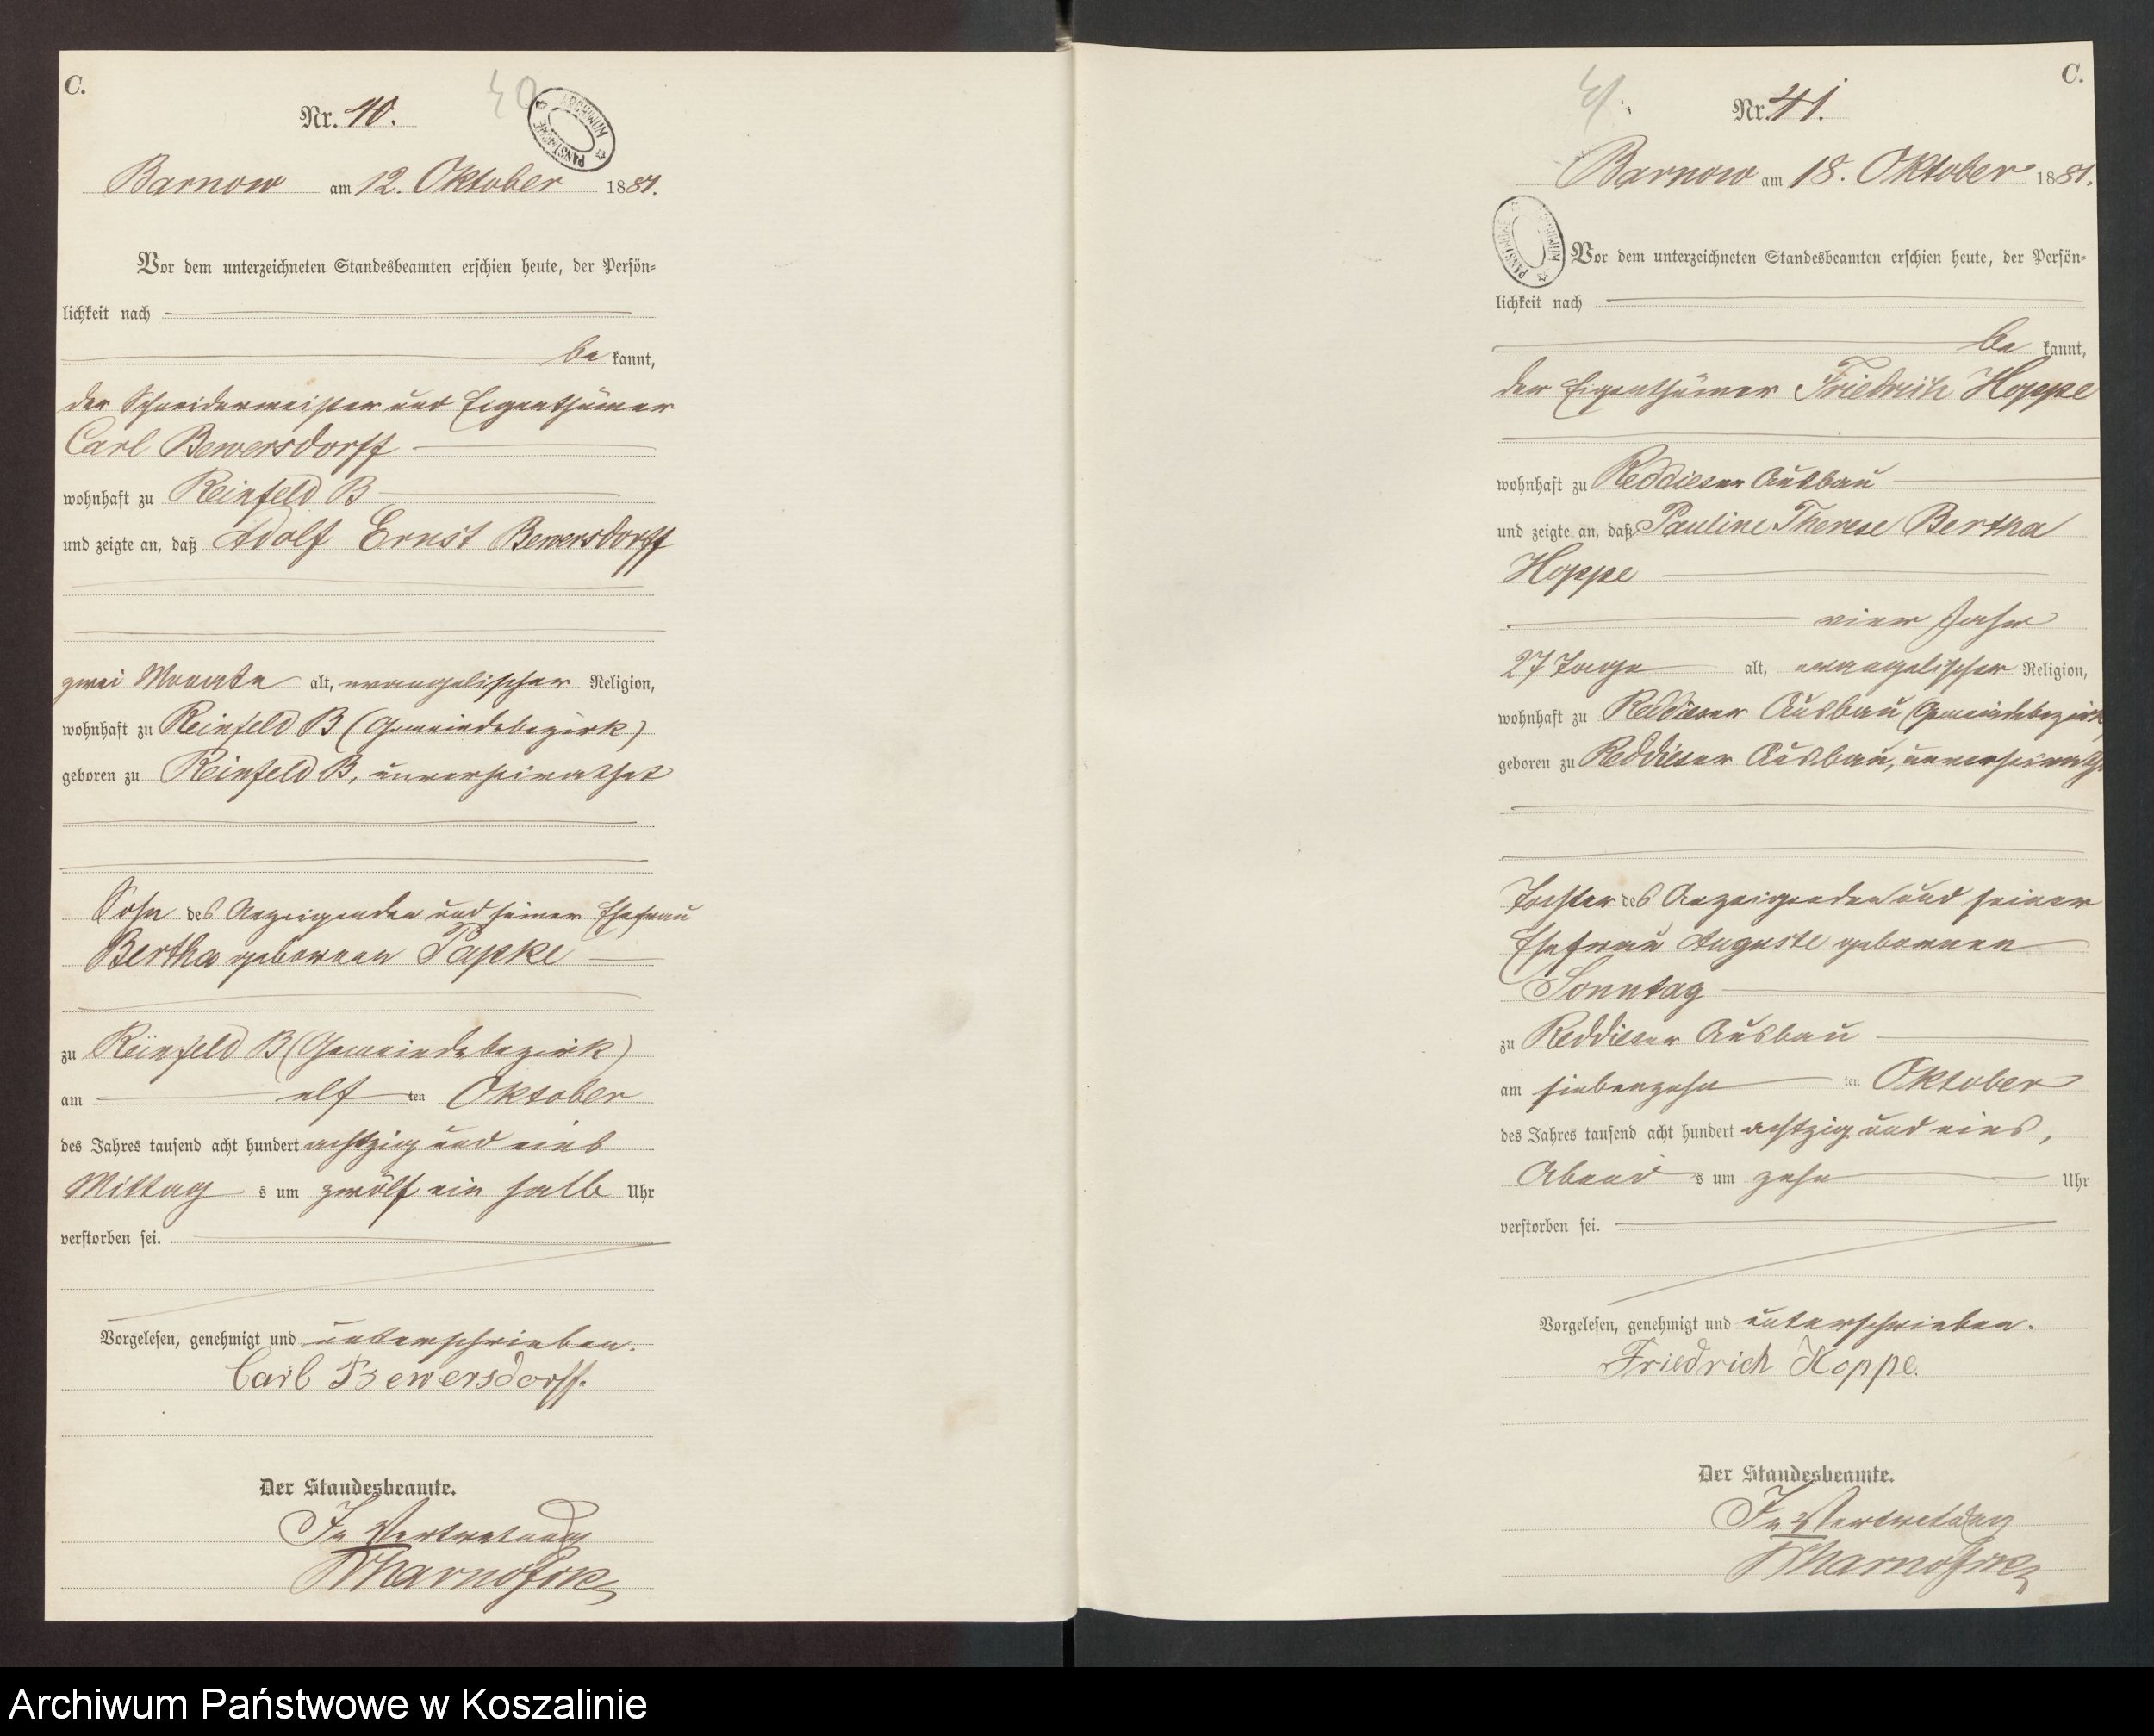 C.
Nr. 40.
40
Barnow am 12. Oktober 1881.
Vor dem unterzeichneten Standesbeamten erschien heute, der Persön=
lichkeit nach
be kannt,
der Schneidermeister und Eigenthümer
Carl Bewersdorff
wohnhaft zu Reinfeld B
und zeigte an, daß Adolf Ernst Bewersdorff
zwei Monate alt, evangelischer Religion,
wohnhaft zu Reinfeld B (Gemeindebezirk)
geboren zu Reinfeld B, unverheirathet
Sohn des Anzeigenden und seiner Ehefrau
Bertha geborenen Papke
zu Reinfeld B (Gemeindebezirk)
am elf ten Oktober
des Jahres tausend acht hundert achtzig und eins
Mittag s um zwölf ein halb Uhr
verstorben sei.
Vorgelesen, genehmigt und unterschrieben.
Carl Bewersdorff.
Der Standesbeamte.
In Vertretung
C.
41.
Nr. 41.
Barnow am 18. Oktober 1881.
Vor dem unterzeichneten Standesbeamten erschien heute, der Persön=
lichkeit nach
be kannt,
der Eigenthümer Friedrich Hoppe
wohnhaft zu Reddieser Ausbau
und zeigte an, daß Pauline Therese Bertha
Hoppe
vier Jahr
27 Tage alt, evangelischer Religion,
wohnhaft zu Reddieser Ausbau (Gemeindebezirk
geboren zu Reddieser Ausbau, unverheirathet
Tochter des Anzeigenden und seiner
Ehefrau Auguste geborenen
Sonntag
zu Reddieser Ausbau
am siebenzehn ten Oktober
des Jahres tausend acht hundert achtzig und eins,
Abend s um zehn Uhr
verstorben sei.
Vorgelesen, genehmigt und unterschrieben.
Friedrich Hoppe.
Der Standesbeamte.
In Vertretung
Archiwum Państwowe w Koszalinie